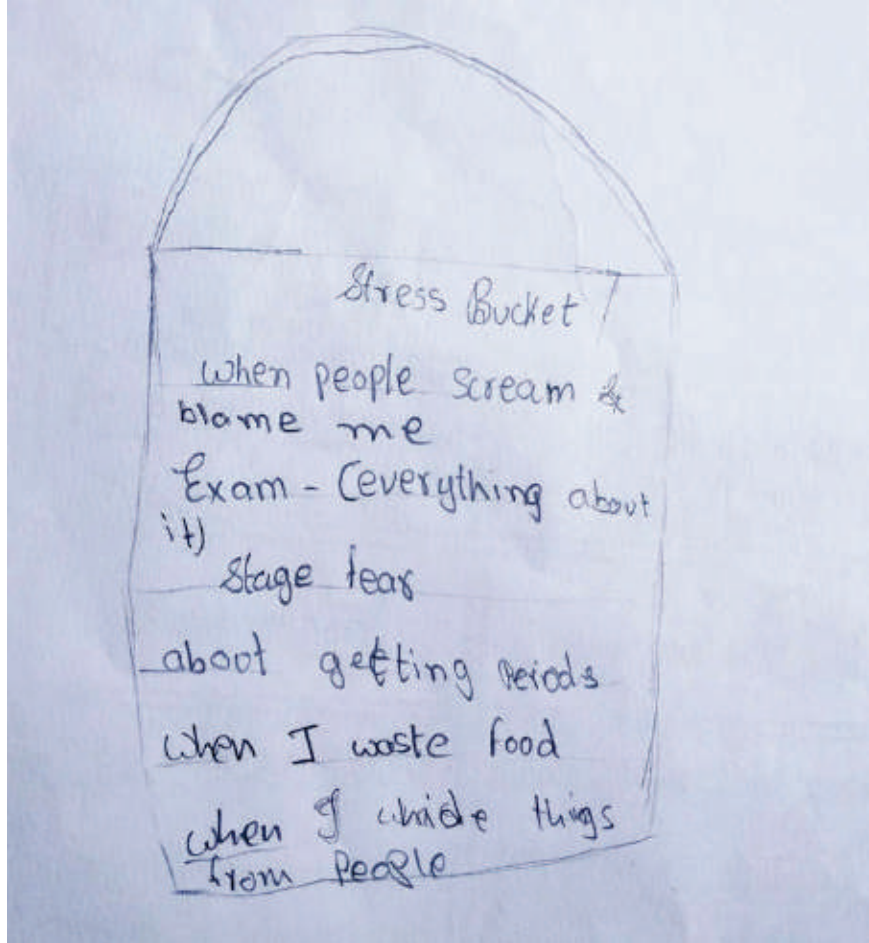 Stress Bucket
when people scream &
blame me
Exam - (everything about
it)
Stage fear
about getting periods
when I waste food
when I things
from people